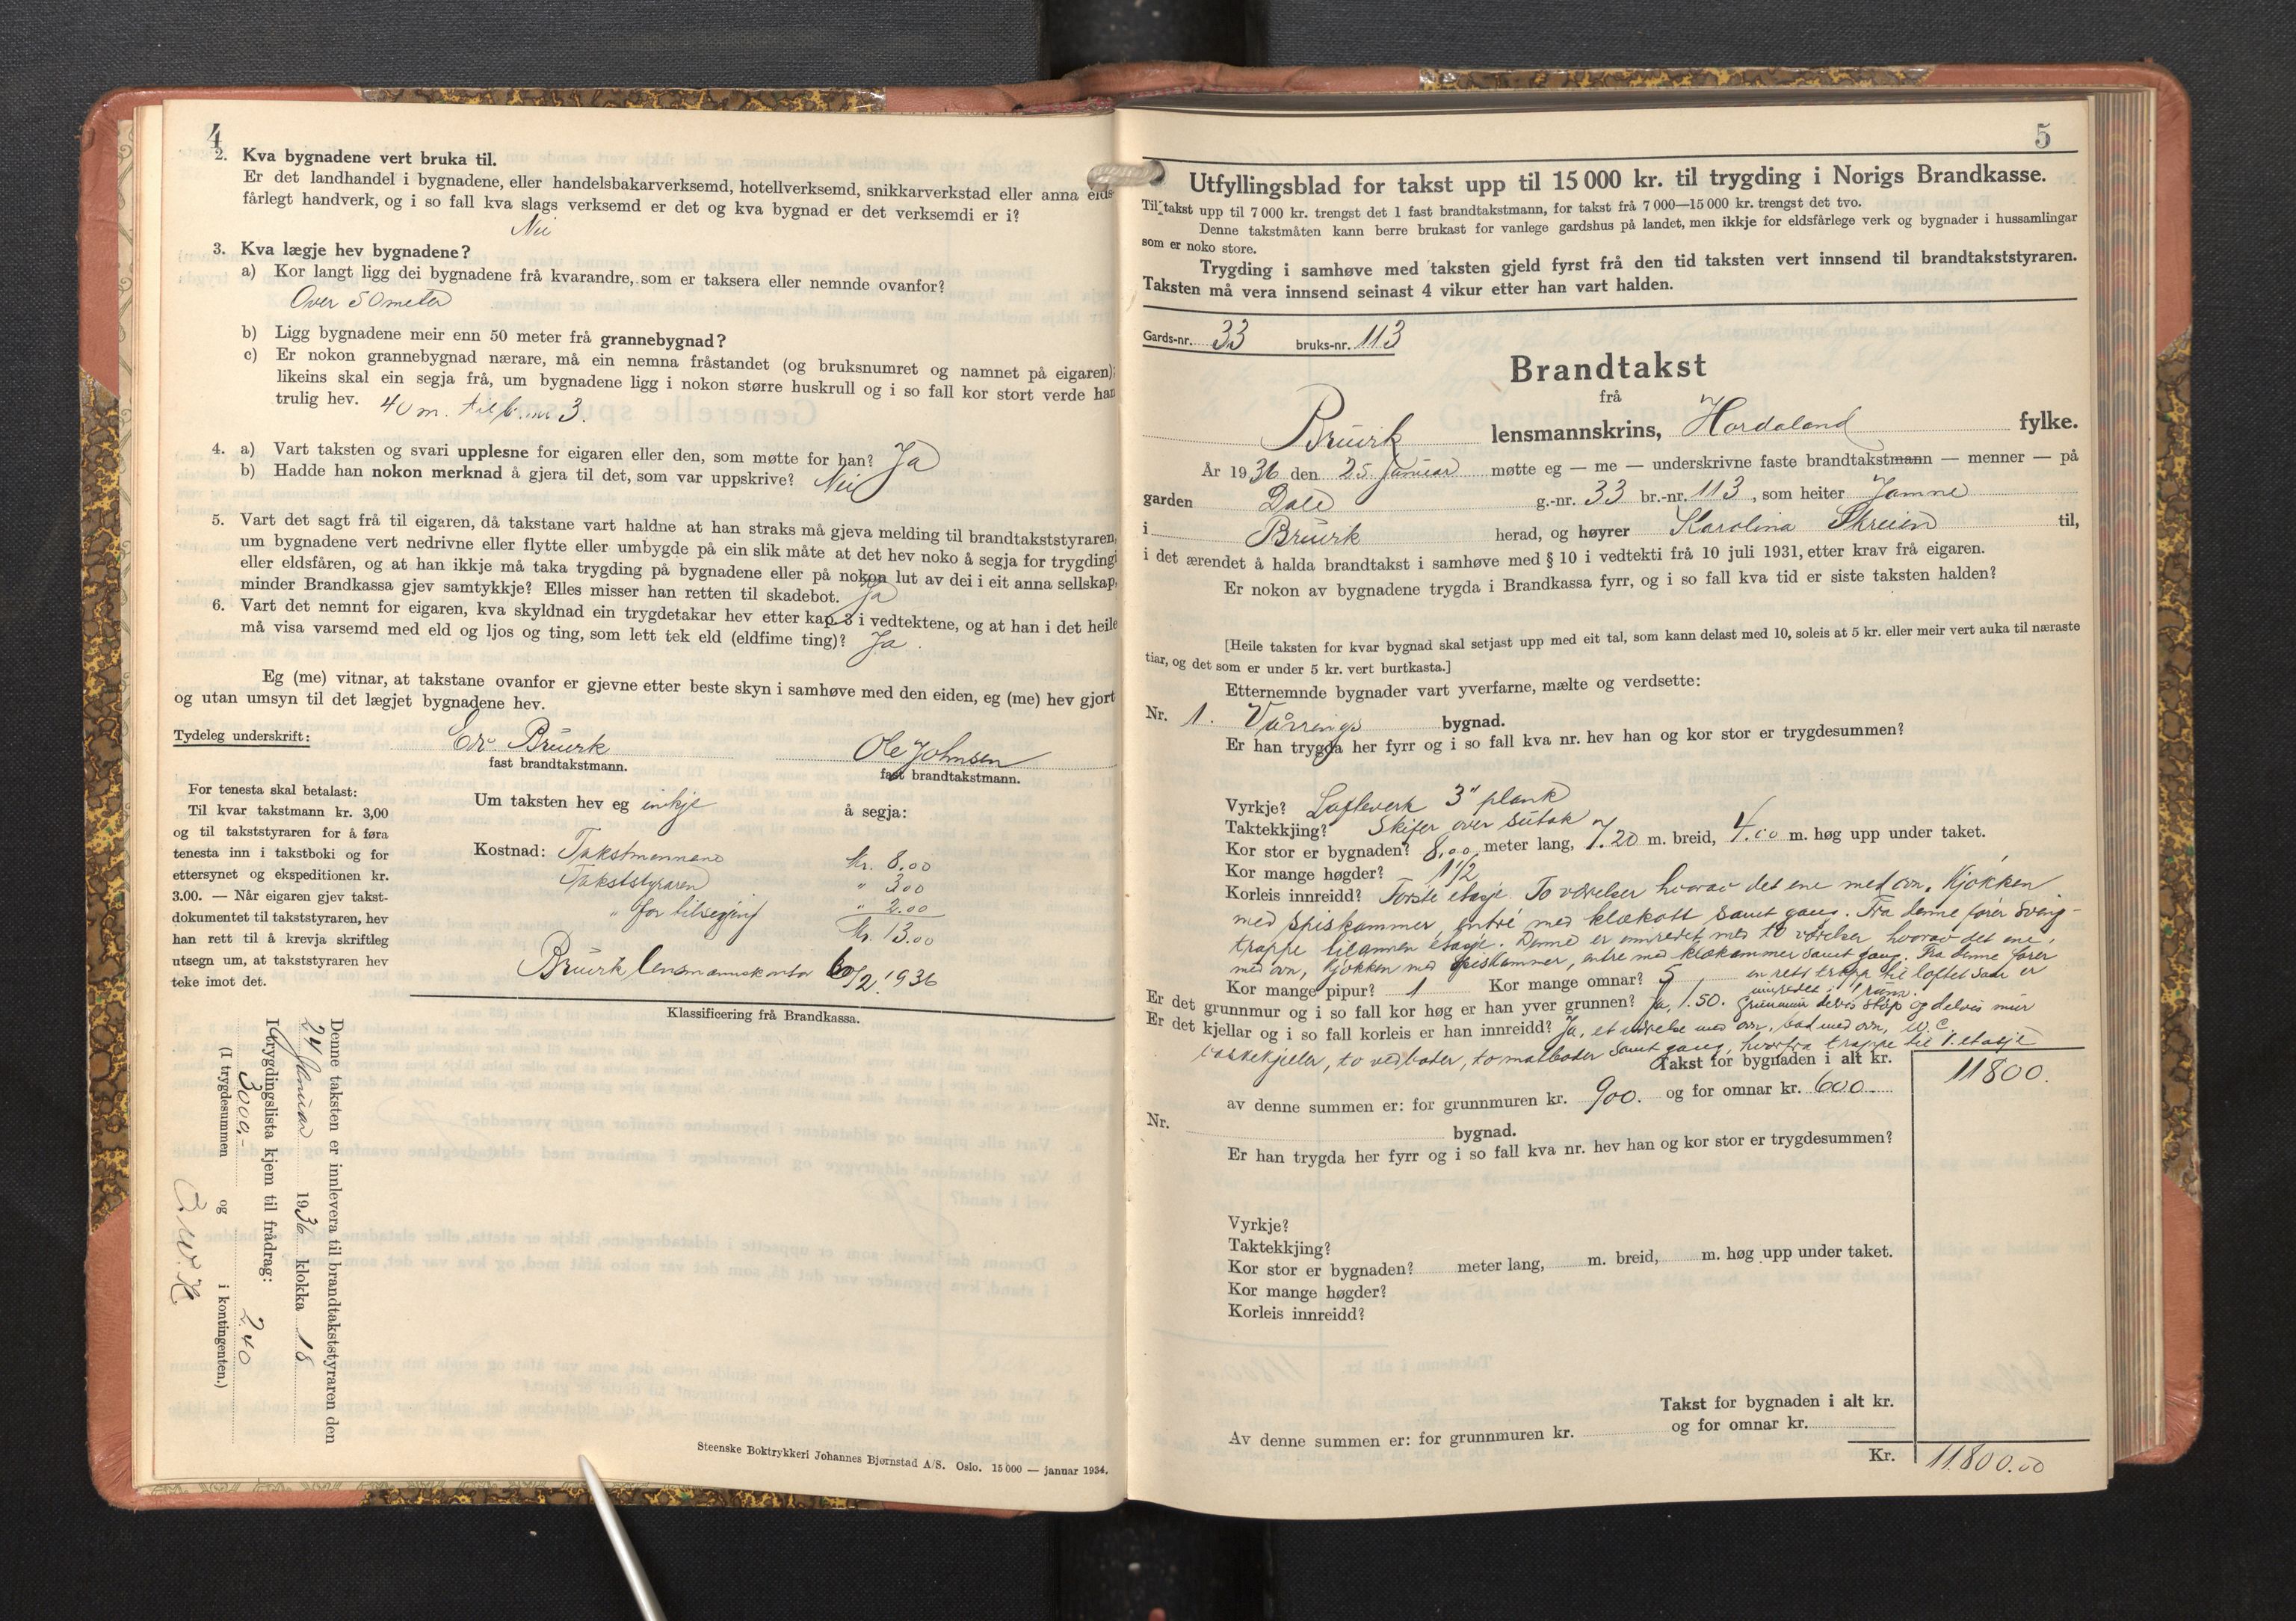 4
2. Kva bygnadene vert bruka til.
Er det landhandel i bygnadene, eller handelsbakarverksemd, hotellverksemd, snikkarverkstad eller anna elds-
fårlegt handverk, og i so fall kva slags verksemd er det og kva bygnad er det verksemdi er i?
Nei
3. Kva lægje hev bygnadene?
a) Kor langt ligg dei bygnadene frå kvarandre, som er taksera eller nemnde ovanfor?
Over 50 meter
b) Ligg bygnadene meir enn 50 meter frå grannebygnad?
c) Er nokon grannebygnad nærare, må ein nemna fråstandet (og bruksnumret og namnet på eigaren);
likeins skal ein segja frå, um bygnadene ligg i nokon større huskrull og i so fall kor stort verde han
trulig hev. 40 m. til b.nr 3.
4. a) Vart taksten og svari upplesne for eigaren eller den, som møtte for han? Ja
b) Hadde han nokon merknad å gjera til det, som var uppskrive? Nei
5. Vart det sagt frå til eigaren, då takstane vart haldne at han straks må gjeva melding til brandtakststyraren,
um bygnadene vert nedrivne eller flytte eller umbygde på ein slik måte at det hev noko å segja for trygdingi
eller eldsfåren, og at han ikkje må taka trygding på bygnadene eller på nokon lut av dei i eit anna sellskap,
minder Brandkassa gjev samtykkje? Elles misser han retten til skadebot. Ja
6. Vart det nemnt for eigaren, kva skyldnad ein trygdetakar hev etter kap. 3 i vedtektene, og at han i det heile
må visa varsemd med eld og ljos og ting, som lett tek eld (eldfime ting)? Ja.
Eg (me) vitnar, at takstane ovanfor er gjevne etter beste skyn i samhøve med den eiden, eg (me) hev gjort
og utan umsyn til det lægjet bygnadene hev.
Tydeleg underskrift: Edv. Bruvik Ole Johnsen
fast brandtakstmann. fast brandtakstmann.
For tenesta skal betalast:
Til kvar takstmann kr. 3,00
og til takststyraren for å føra
tenesta inn i takstboki og for
ettersynet og ekspeditionen kr.
3.00. — Når eigaren gjev takst-
dokumentet til takststyraren, hev
han rett til å krevja skriftleg
utsegn um, at takststyraren hev
teke imot det.
Um taksten hev eg inkje å segja:
Kostnad: Takstmennene kr. 8.00
Takststyraren " 3 00
" for tilsegjing " 2.00
kr. 13.00
Bruvik lensmannskontor /2 1936
Klassificering frå Brandkassa.
Denne taksten er innlevera til brandtakststyraren den
24 Januar 1936 klokka 18
I trygdingslista kjem til frådrag:
3000.- 2.40
(I trygdesummen og i kontingenten.)
O. W. H
Steenske Boktrykkeri Johannes Bjørnstad A/S. Oslo. 15 000 — januar 1934.
5
Utfyllingsblad for takst upp til 15 000 kr. til trygding i Norigs Brandkasse.
Til takst upp til 7 000 kr. trengst det 1 fast brandtakstmann, for takst frå 7 000—15 000 kr. trengst det tvo.
Denne takstmåten kann berre brukast for vanlege gardshus på landet, men ikkje for eldsfårlege verk og bygnader i hussamlingar
som er noko store.
Trygding i samhøve med taksten gjeld fyrst frå den tid taksten vert innsend til brandtakststyraren.
Taksten må vera innsend seinast 4 vikur etter han vart halden.
Gards-nr. 33 bruks-nr. 113
Brandtakst
frå
Bruvik lensmannskrins, Hordaland fylke.
År 1936 den 25. Januar møtte eg — me — underskrivne faste brandtakstmann — menner — på
garden Dale g.-nr. 33 br.-nr. 113, som heiter Jamne
i Bruvik herad, og høyrer Karolina Skreien til,
i det ærendet å halda brandtakst i samhøve med § 10 i vedtekti frå 10 juli 1931, etter krav frå eigaren.
Er nokon av bygnadene trygda i Brandkassa fyrr, og i so fall kva tid er siste taksten halden?
[Heile taksten for kvar bygnad skal setjast upp med eit tal, som kann delast med 10, soleis at 5 kr. eller meir vert auka til næraste
tiar, og det som er under 5 kr. vert burtkasta.]
Etternemnde bygnader vart yverfarne, mælte og verdsette:
Nr. 1. Våningsbygnad.
Er han trygda her fyrr og i so fall kva nr. hev han og kor stor er trygdesummen?
Vyrkje? Lafteverk 3" plank
Taktekkjing? Skifer over sutak
Kor stor er bygnaden? 8,00 meter lang, 7.20 m. breid, 4.00 m. høg upp under taket.
Kor mange høgder? 1 1/2
Korleis innreidd? Første etasje. To værelser hvorav det ene med ovn, kjøkken
med spiskammer, entré med klækott samt gang. Fra denne fører sving-
trappe til annen etasje. Denne er innredet med to værelser hvorav det ene
med ovn, kjøkken med spiskammer, entre med klækammer samt gang. Fra denne fører
Kor mange pipur? 1 Kor mange omnar? 5 en rett trapp til loftet som er
innredet i 1 rum.
Er det grunnmur og i so fall kor høg er han yver grunnen? Ja, 1.50. Grunnmur delvis støp og delvis mur
Er det kjellar og i so fall korleis er han innreidd? Ja, et værelse med ovn, bad med ovn, W.C.
vaskekjeller, to vedboder, to matboder samt gang, hvorfra trappe til 1. etasje
Takst for bygnaden i alt kr. 11800.
av denne summen er: for grunnmuren kr. 900. og for omnar kr. 600.
Nr. bygnad.
Er han trygda her fyrr og i so fall kva nr. hev han og kor stor er trygdesummen?
Vyrkje?
Taktekkjing?
Kor stor er bygnaden? meter lang, m. breid, m. høg upp under taket.
Kor mange høgder?
Korleis innreidd?
Takst for bygnaden i alt kr.
Av denne summen er: for grunnmuren kr. og for omnar kr.
Kr. 11.800.00